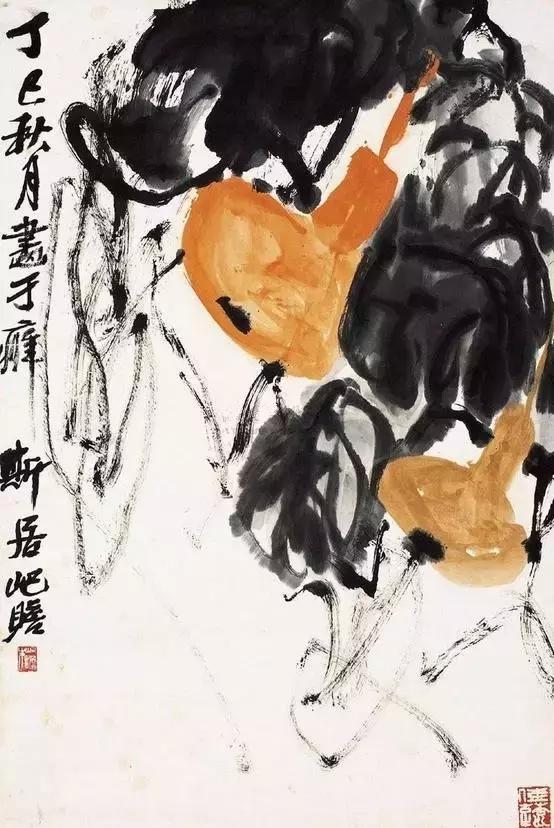 丁巳秋月畫于癖斯居屺瞻